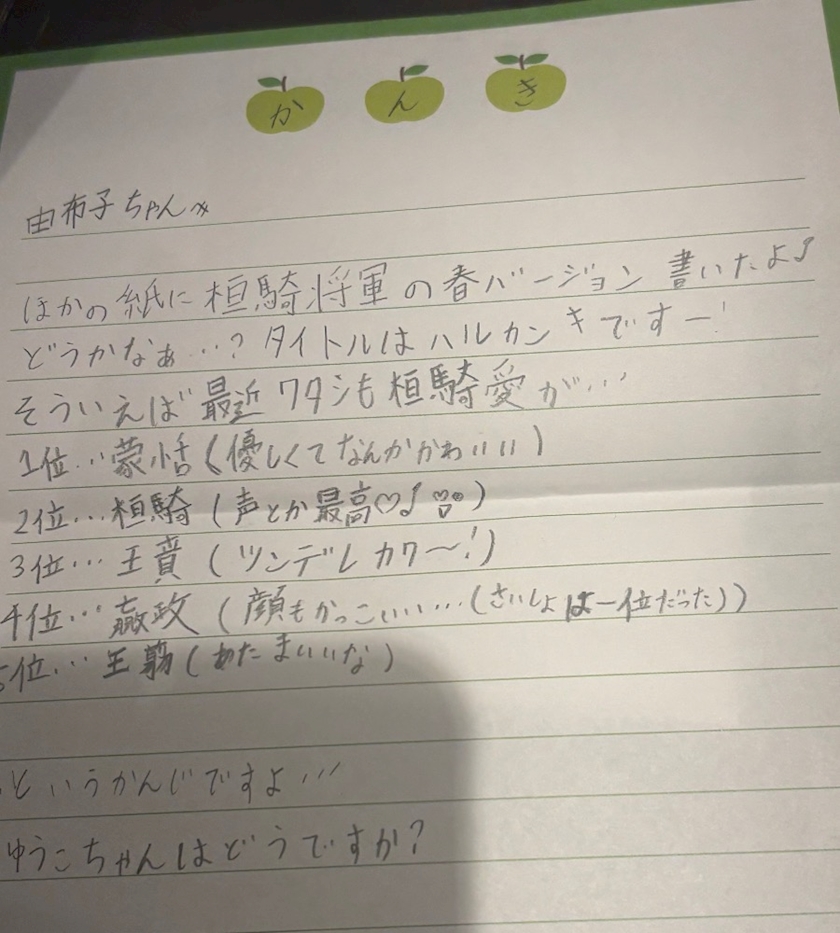 か ん き
由布子ちゃんへ
ほかの紙に桓騎将軍の春バージョン書いたよ♪
どうかなぁ…？タイトルはハルカンキですー！
そういえば最近ワタシも桓騎愛が…
1位…蒙恬(優しくてなんかかわいい)
2位…桓騎(声とか最高♡♪)
3位…王賁(ツンデレカワ〜！)
4位…嬴政(顔もかっこいい…(さいしょは一位だった))
5位…王翦(あたまいいな)
というかんじですよ…
ゆうこちゃんはどうですか？